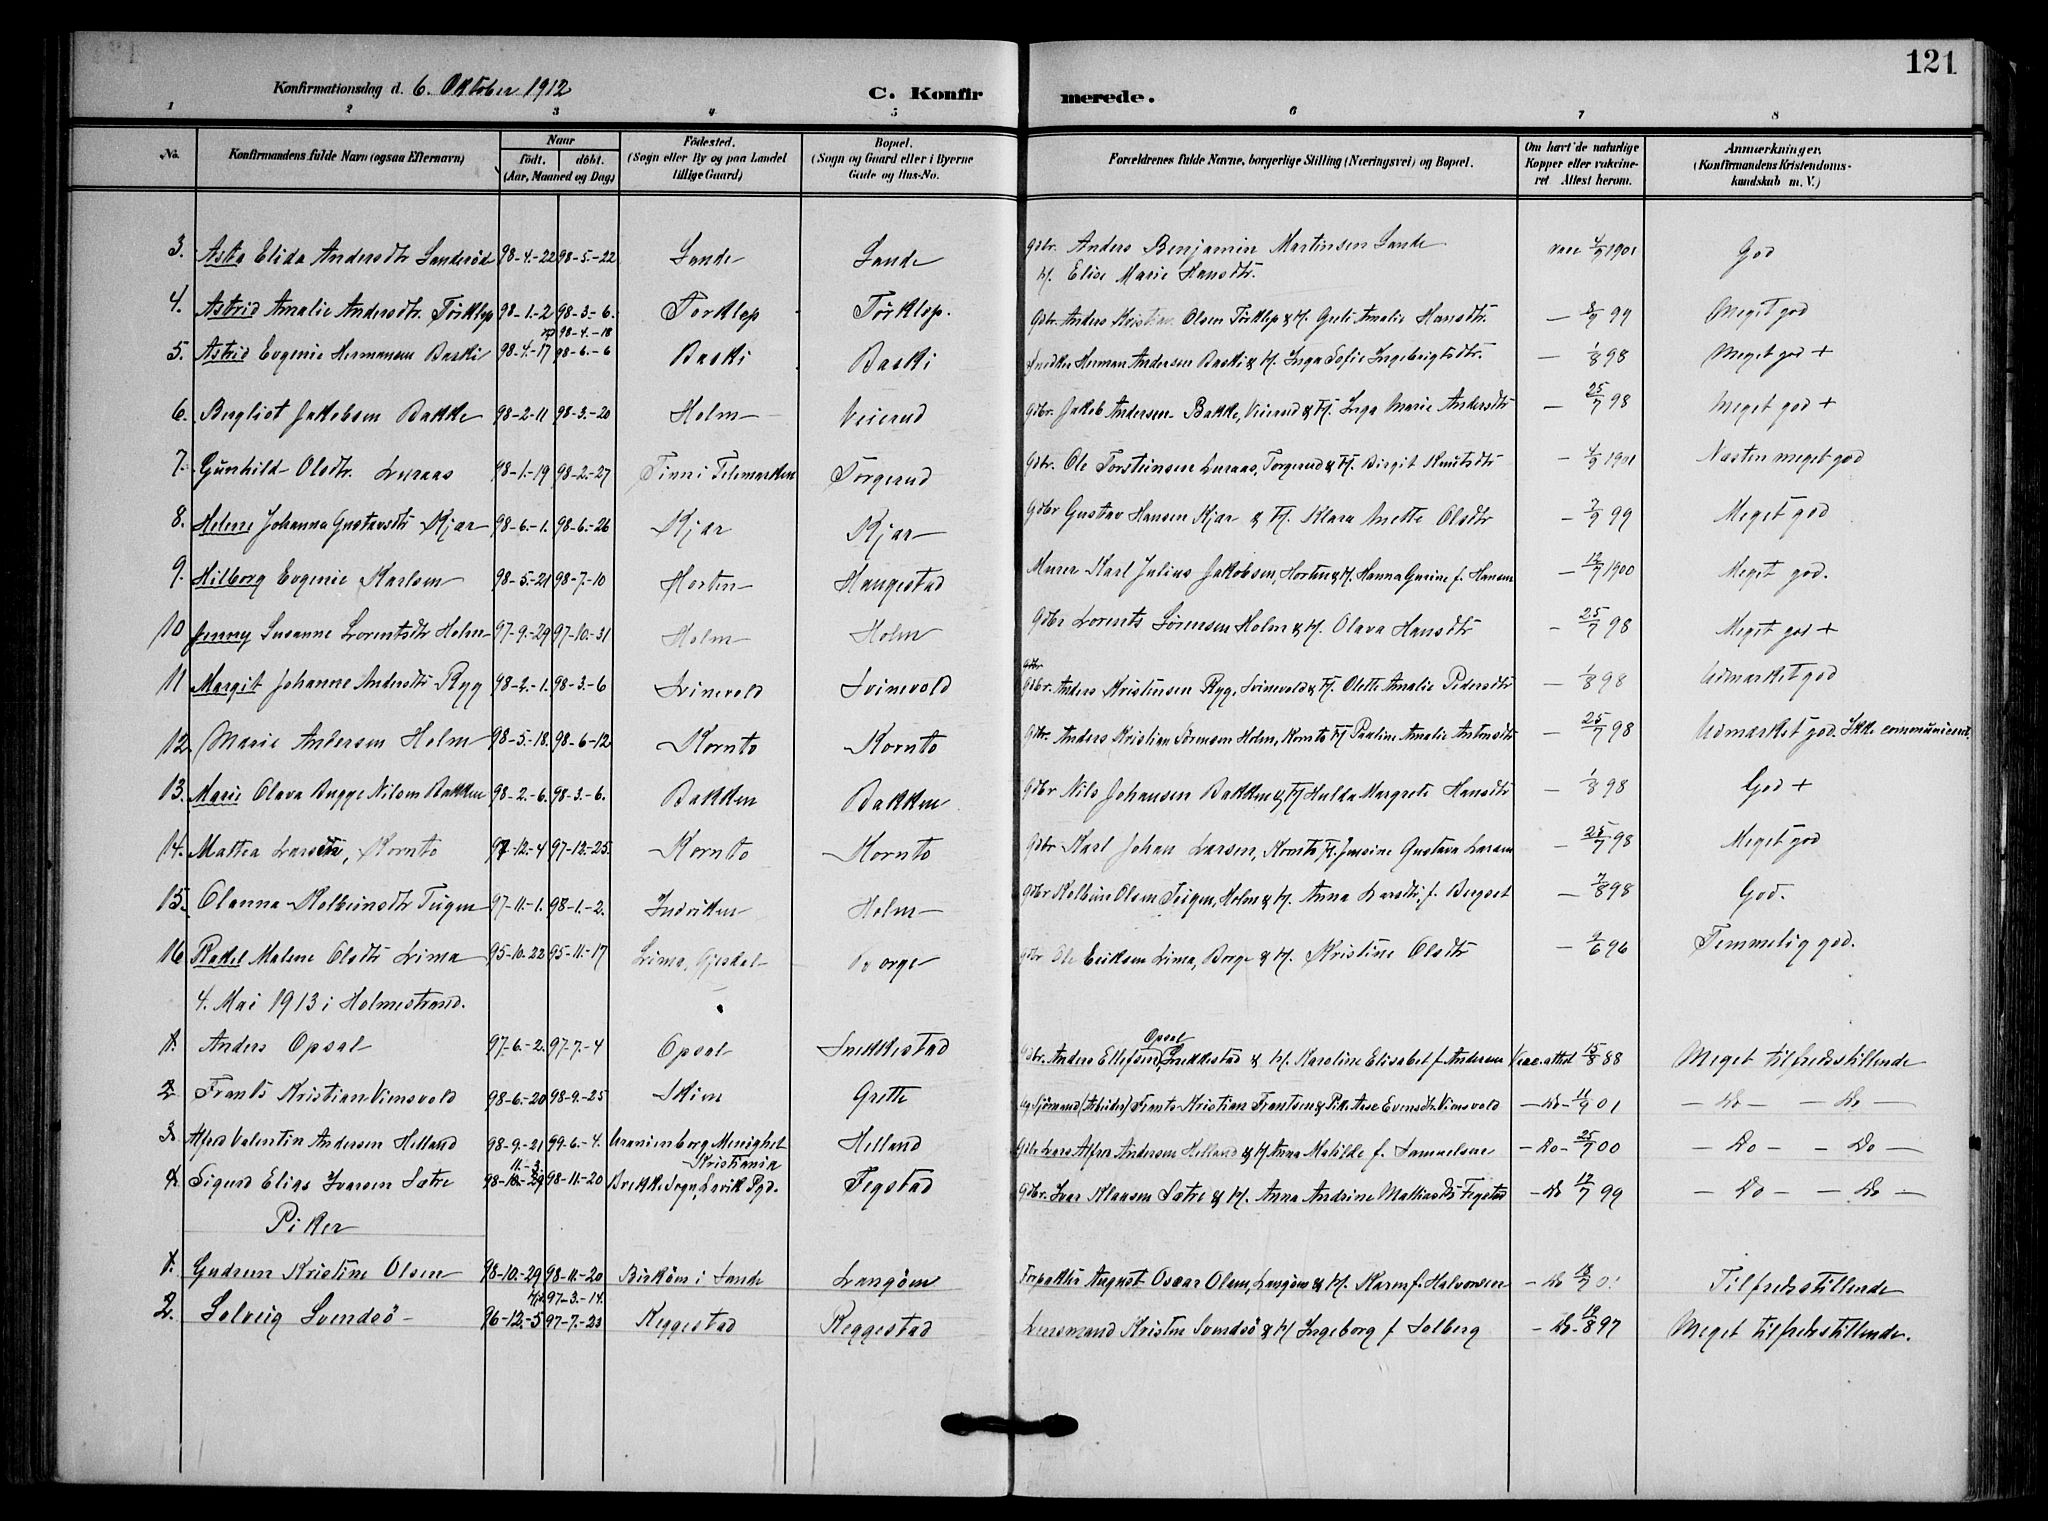 121
Konfirmationsdag d. 6. Oktober 1912
C. Konfirmerede.
1 2 3 4 5 6 7 8
No. Konfirmandens fulde Navn (ogsaa Efternavn) Naar født. døbt. (Aar, Maaned og Dag) Fødested. (Sogn eller By og paa Landet tillige Gaard) Bopæl. (Sogn og Gaard eller i Byerne Gade og Hus-No. Forældrenes fulde Navne, borgerlige Stilling (Næringsvei) og Bopæl. Om havt de naturlige Kopper eller vakcineret Attest herom. Anmærkninger. (Konfirmandens Kristendomskundskab m. V.)
3. Asta Elida Andersdtr Sanderød 98-4.-22 98-5.-22 Sande Sande Gdbr. Anders Benjamin Martinsen Sande vacc 4/9 1901 God
& H. Elise Marie Hansdtr.
4. Astrid Amalie Andersdtr. Törklep 98-1.-2 98-3-6. Torklep Törklep. Gdbr. Anders Kristian Olsen Törklep & H. Grete Amalie Hansdtr. — 8/9 99 Meget god
98-4.-18
5. Astrid Evgenie Hermansen Baski 98-4.-17 98-6.-6 Baski Baski Snedker Herman Andersen Baski & H. Inga Sofie Ingebrigtsdtr. — 1/8 98 Meget god +
6. Bergliot Jakobsen Bakke 98-2-11 98-3.-20 Holm Veierud Gdbr. Jakob Andersen Bakke, Veierud & H. Inga Marie Andersdtr — 25/7 98 Meget god +
7. Gunhild Olsdtr. Luraas 98-1.-19 98-2.-27 Tinn i Telemarken Torgerud Gdbr. Ole Torsteinsen Luraas, Torgerud & H. Birgit Knutsdtr — 4/9 1901 Næsten meget god
8. Helene Johanna Gustavsdtr Kjær 98-6.-1. 98-6.-26 Kjær Kjær Gdbr Gustav Hansen Kjær & H. Klara Anette Olsdtr — 7/9 99 Meget god
9. Hilborg Evgenie Karlsen 98-5.-21 98-7.-10 Horten Haugestad Murer Karl Julius Jakobsen, Horten & H. Hanna Gurine f. Hansen — 12/7 1900 Meget god.
10 Jenny Susanne Lorentsdtr Holm 97-9.-29 97-10.-31 Holm Holm Gdbr Lorents Sørensen Holm & H. Olava Hansdtr — 25/7 98 Meget god +
11 Margit Johanne Andersdtr Ryg 98-2.-1. 98-3.-6 Svinevold Svinevold Gdbr. Anders Kristensen Ryg, Svinevold & H. Olette Amalie Pedersdtr — 1/8 98 Udmærket god
12. Marie Andersen Holm 98-5.-18. 98-6-12 Kornto Kornto Gdbr. Anders Kristian Sørensen Holm, Kornto & H Pauline Amalie Antonsdtr — 25/7 98 Udmærket god. Ikke communicert.
13. Marie Olava Bugge Nilsen Bakken 98-2.-6. 98-3.-6. Bakken Bakken Gdbr Nils Johansen Bakken & H Hulda Margrete Hansdtr — 1/8 98 God +
14. Mattea Larsen, Kornto 97-12.-4 97-12.-25. Kornto Kornto Gdbr Karl Johan Larsen, Kornto H. Josine Gustava Larsen — 25/7 98 Meget god
15. Olanna Kolbeinsdtr Teigen 97-11.-1. 98-1.-2. Holm Gdbr Kolbein Olsen Teigen, Holm & H. Anna Larsdtr. f. Bergset — 7/8 98 God.
16 Rakel Malene Olsdtr Lima 95-10.-22 95-11.-17 Lima, Gjesdal Borge Gdbr Ole Eriksen Lima, Borge & H. Kristine Olsdtr — 2/6 96 Temmelig god.
4. Mai 1913 i Holmestrand.
1. Anders Opsal 97.-6.-2. 97.-7.-4 Opsal Snekkestad Gdbr. Anders Ellefsen Opsal, Snekkestad & H. Karoline Elisabet f. Andersen Vacc. attest 15/8 88 Meget tilfredsstillende
2 Frants Kristian Vimsvold 98-6.-20 98-9.-25 Skien Grette Sjömand (Arbeider) Frants Kristian Frantsen & Pike Aase Evensdtr Vimsvold — Do — 11/9 01 — Do — — Do —
3. Alfred Valentin Andersen Helland 98-9.-21 99-6.-4. Uranienborg Menighet Kristiania Helland Gdbr Lars Alfred Andersen Helland & H Anna Matilde f. Samuelsen — Do — 25/7 00 — Do — — Do —
11.-3.
4. Sigurd Elias Ivarsen Sætre 98-10.-29 98-11.-20 Brekke Sogn, Lavik Pgd. Tegstad Gdbr. Ivar Klausen Sætre & H. Anna Andrine Mathiasdtr Tegstad — Do 12/7 99 — Do — — Do —
Piker
1. Gudrun Kristine Olsen 98-10.-29 98-11.-20 Birköen i Sande Langöen Forpakter August Oscar Olsen, Langöen & H. Karen f. Halvorsen — Do Tilfredsstillende
97.-3.-14.
2. Solveig Svendsö 96-12.-5 97-7.-23 Reggestad Reggestad Lensmand Kristen Svendsö & H Ingeborg f Solberg — Do 12/8 97 Meget tilfredsstillende.